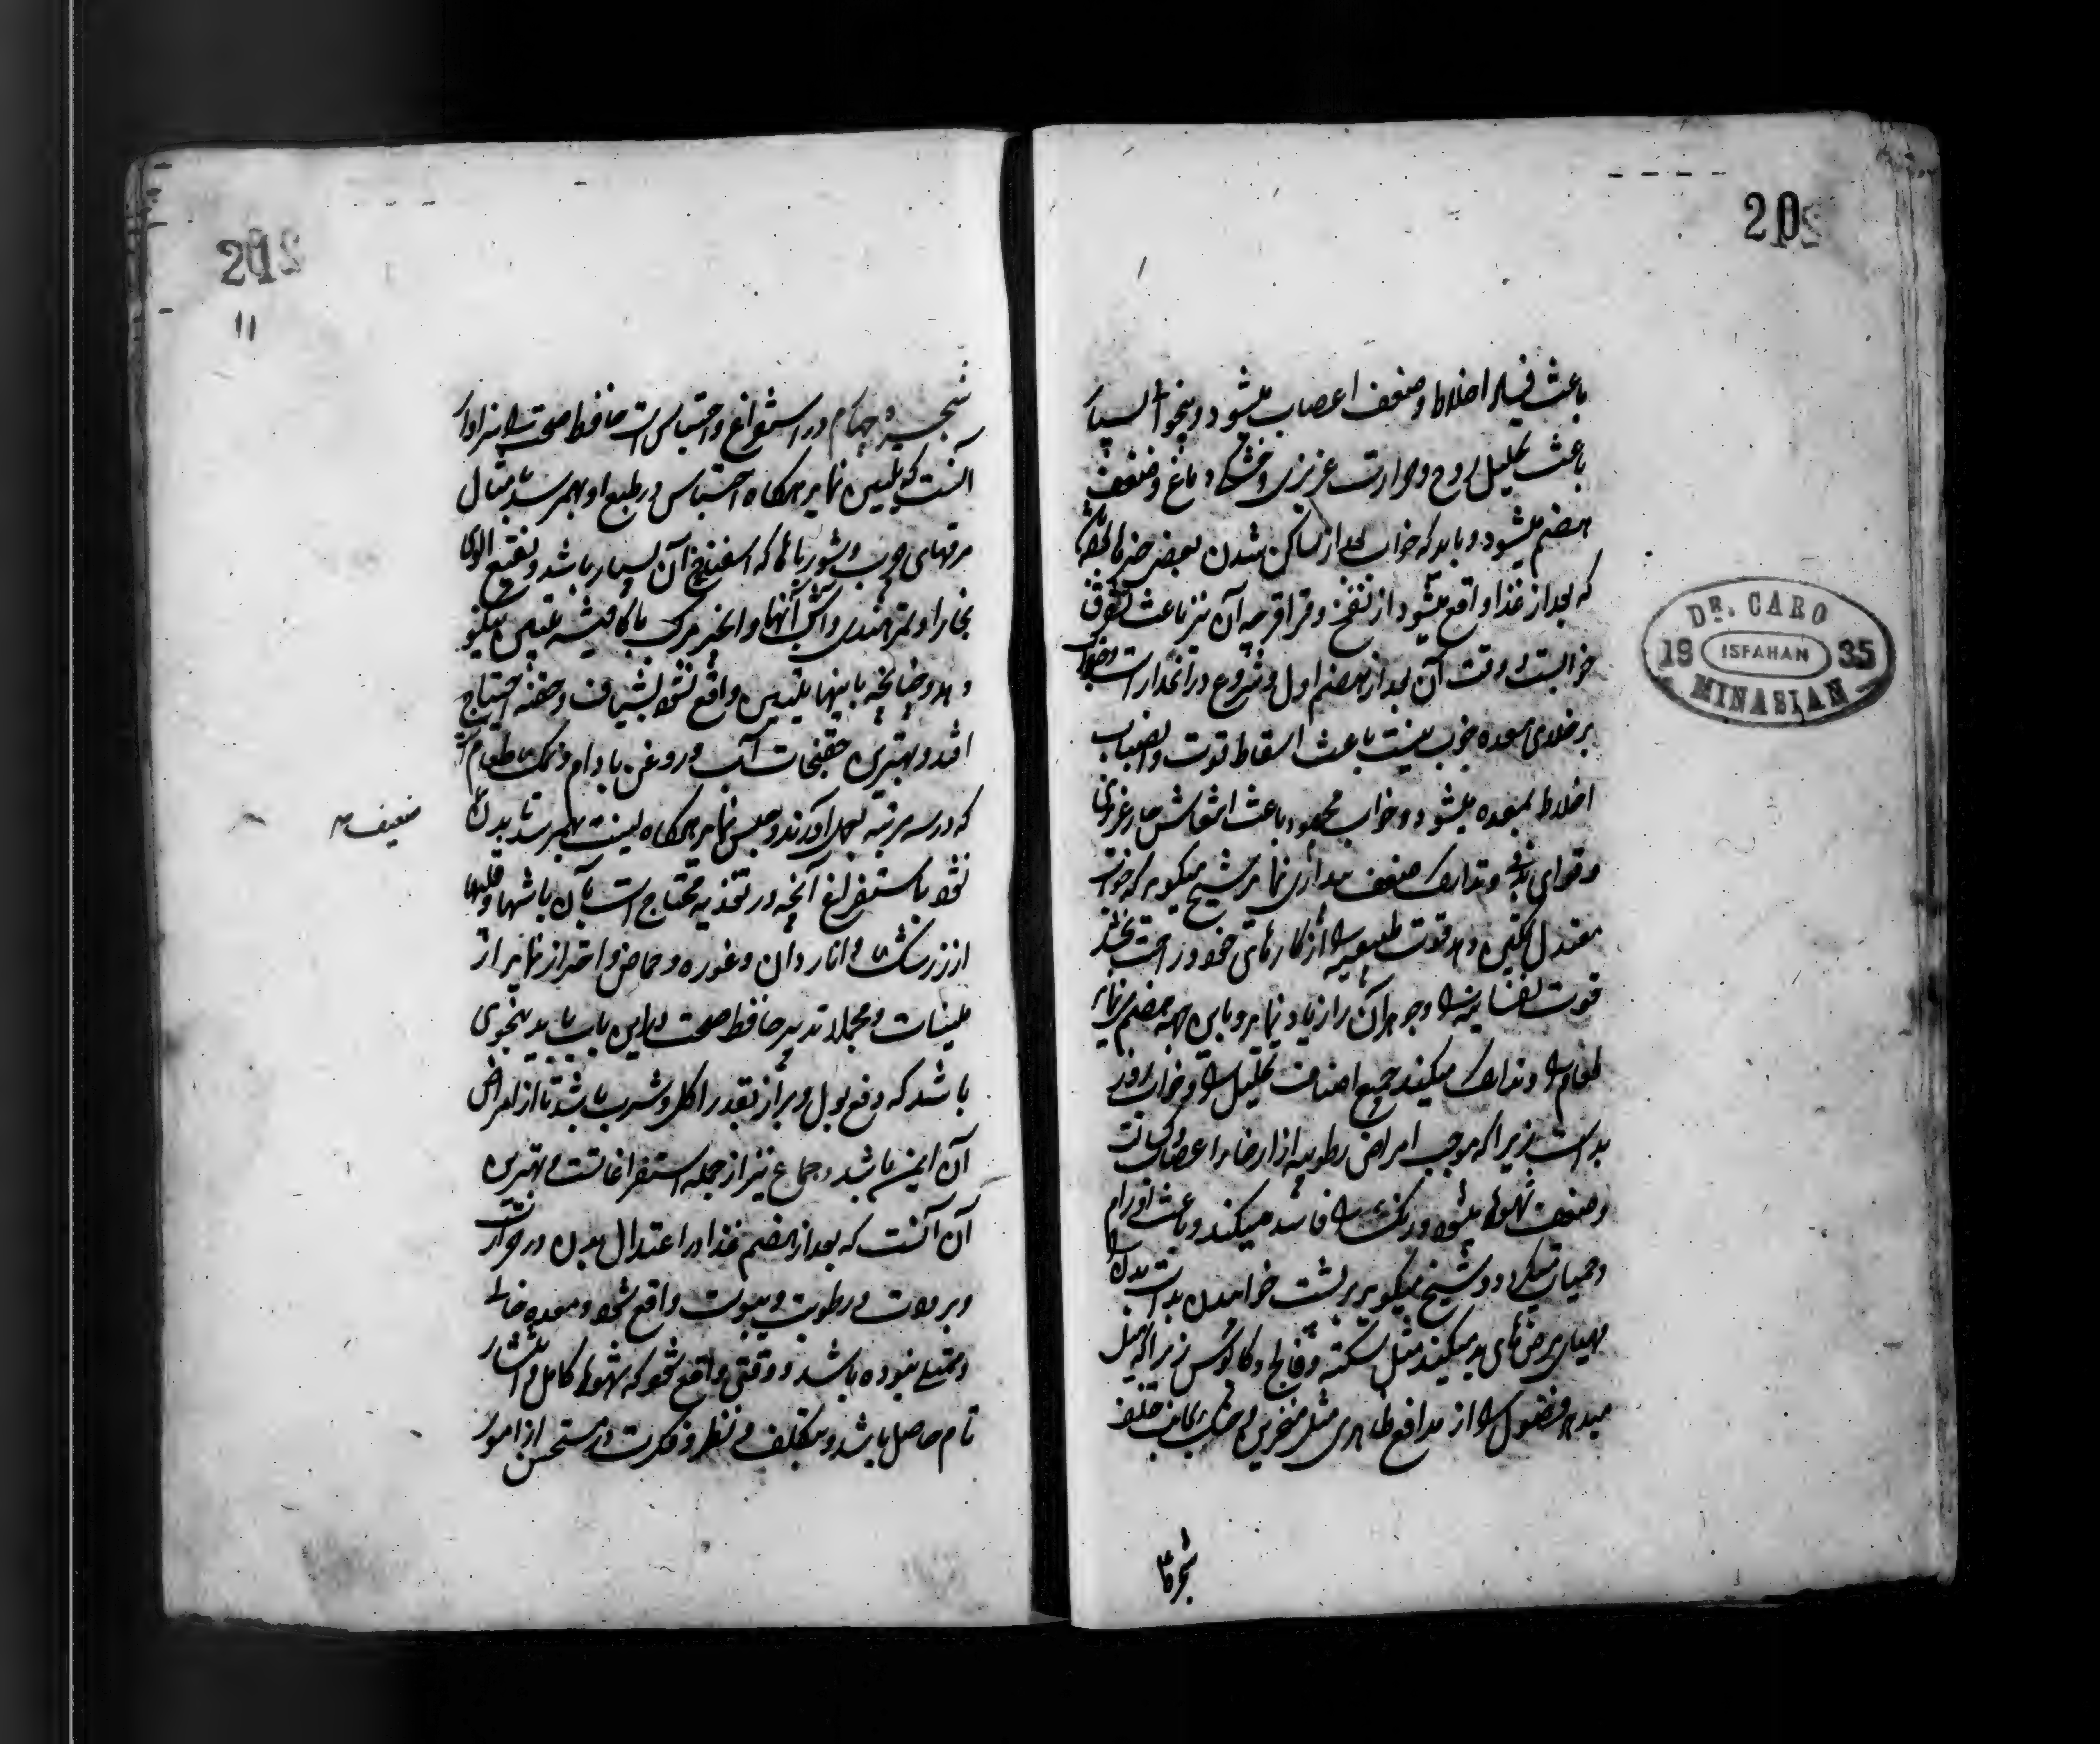 20
باعث فساد اخلاط و ضعف اعصاب میشود و بیخوابی بسیار
باعث تحلیل روح و حرارت غریزی و خشکی دماغ و ضعف
هضم میشود و باید که خواب بعد از ساکن شدن بعضی
که بعد از غذا واقع میشود از نفخ و قراقر چه آن نیز باعث تشویش
خوابست و وقت آن بعد از هضم اول و شروع در انحدار است و خواب
بر خلای معده خوب نیست باعث اسقاط قوت و انصباب
اخلاط بمعده میشود و خواب محمود باعث انتعاش حار غریزی
و قوای بدنی و تدارک ضعف نماید شیخ میگوید که خواب
معتدل تمکین دهد قوت طبیعیه را از کارهای خود و راحت بخشد
قوت نفسانیه را و جوهر آن را زیاد نماید و باین جهة هضم
طعام را و تدارک میکند جمیع اصناف تحلیل را و خواب روز
بد است زیرا که موجب امراض رطوبیه از ارخاء اعصاب
و ضعف شهوة میشود و رنگ را فاسد میکند و باعث اورام
و حمیات میگردد و شیخ میگوید بر پشت خوابیدن بد است بدن را
مهیای مرضهای بد میکند مثل سکته و فالج و کابوس زیرا که میل
میدهد فضول را از مدافع ظاهری مثل منخرین و حنک بجانب خلف
شجره
DR. CARO
19 ISFAHAN 35
MINASIAN
11
شجره چهارم در استفراغ و احتباس است حافظ صحت را سزاوار
آنست که تلیین نماید هرگاه احتباس در طبع او بهم رسد بمثال
مرقهای چرب و شورباها که اسفناخ آن بسیار باشد و نقیع آلوی
بخارا و تمر هندی و آش آنها و انجیر مرکب با کافیشه تلیین میکند
و هر چنانچه باینها تلیین واقع نشود بشیاف و حقنه احتیاج
افتد و بهترین حقنجات آب و روغن بادام و نمک طعام است
که در سه مرتبه بعمل آورند و حبس نماید هرگاه لینت بهم رسد تا بدن
ضعیف
نشود باستفراغ آنچه در تغذیه محتاج است بآن باشها و قلیها
از زرشک و اناردان و غوره و حماض و احتراز نماید از
ملینات و مجملا تدبیر حافظ صحت در این باب باید بنحوی
باشد که دفع بول و براز بقدر اکل و شرب باشد تا از امراض
آن ایمن باشد و جماع نیز از جمله استفراغاتست و بهترین
آن آنست که بعد از هضم غذا و اعتدال بدن در حرارت
و برودت و رطوبت و یبوست واقع شود و معده خالی
و ممتلی نبوده باشد و وقتی واقع شود که شهوة کامل و انتشار
تام حاصل باشد و بتکلف و نظر و فکرت در مستحسن از امور